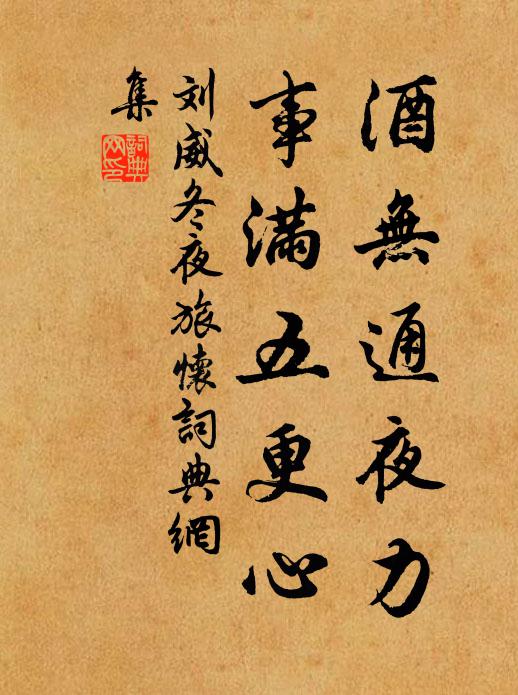 酒無通夜力
事滿五更心
刘威冬夜旅懷詞典網
集
詞典
网印